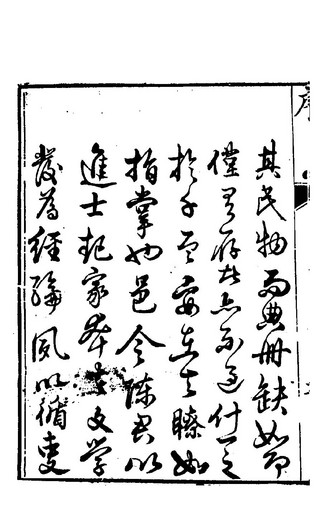 其民物而典冊缺如即
僅有存者亦不過什一之
於千百安在其瞭如
指掌也邑令陳君以
進士起家本其文學
發為經綸夙以循吏